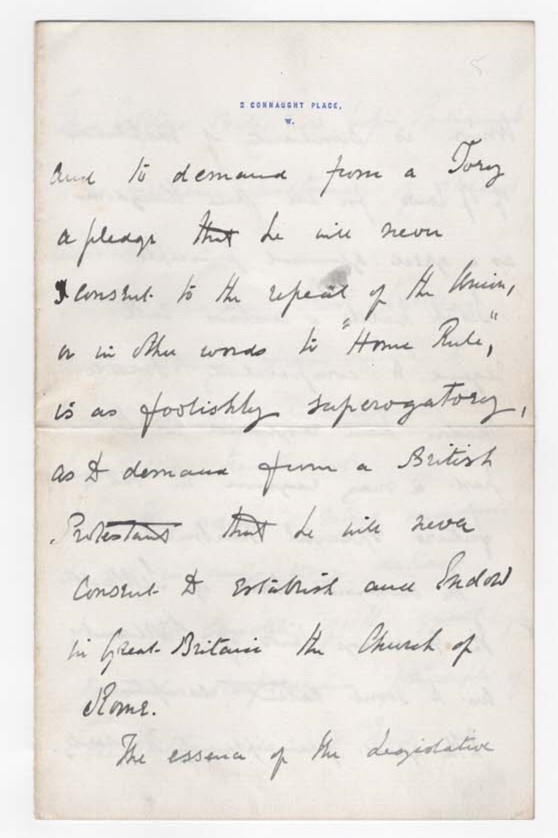 5
2 CONNAUGHT PLACE,
W.
and to demand from a Tory
a pledge that he will never
consent to the repeal of the Union,
or in other words to "Home Rule,"
is as foolishly superogatory,
as to demand from a British
Protestant that he will never
Consent to establish and Endow
in Great Britain the Church of
Rome.
The essence of the Legislative